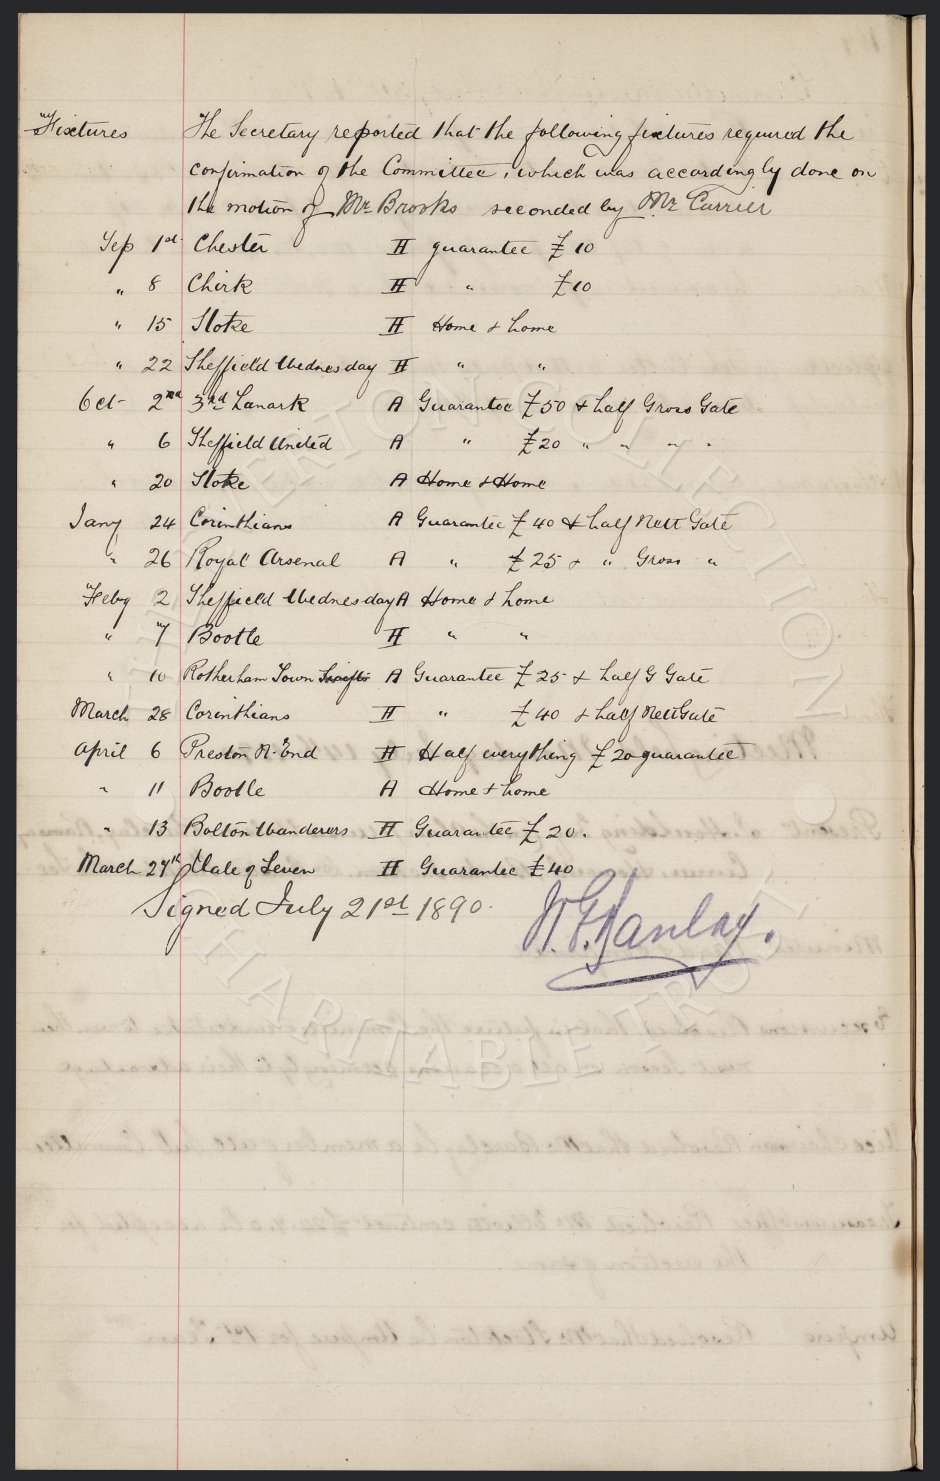 Fixtures The Secretary reported that the following fixtures required the
confirmation of the Committee, which was accordingly done on
the motion of Mr Brooks seconded by Mr Currier
Sep 1st Chester H guarantee £10
" 8 Chirk H " £10
" 15 Stoke H Home & home
" 22 Sheffield Wednesday H " "
Oct 2nd 3rd Lanark A Guarantee £50 & half Gross Gate
" 6 Sheffield United A " £20 " " " "
" 20 Stoke A Home & Home
Jany 24 Corinthians A Guarantee £40 & half Nett Gate
" 26 Royal Arsenal A " £25 & " Gross "
Feby 2 Sheffield Wednesday A Home & home
" 7 Bootle H " "
" 10 Rotherham Town A Guarantee £25 & half G Gate
March 28 Corinthians H " £40 & half Nett Gate
April 6 Preston N. End H Half everything £20 guarantee
" 11 Bootle A Home & home
" 13 Bolton Wanderers H Guarantee £20.
March 27th Vale of Leven H Guarantee £40
Signed July 21st 1890.
EVERTON COLLECTION
CHARITABLE TRUST